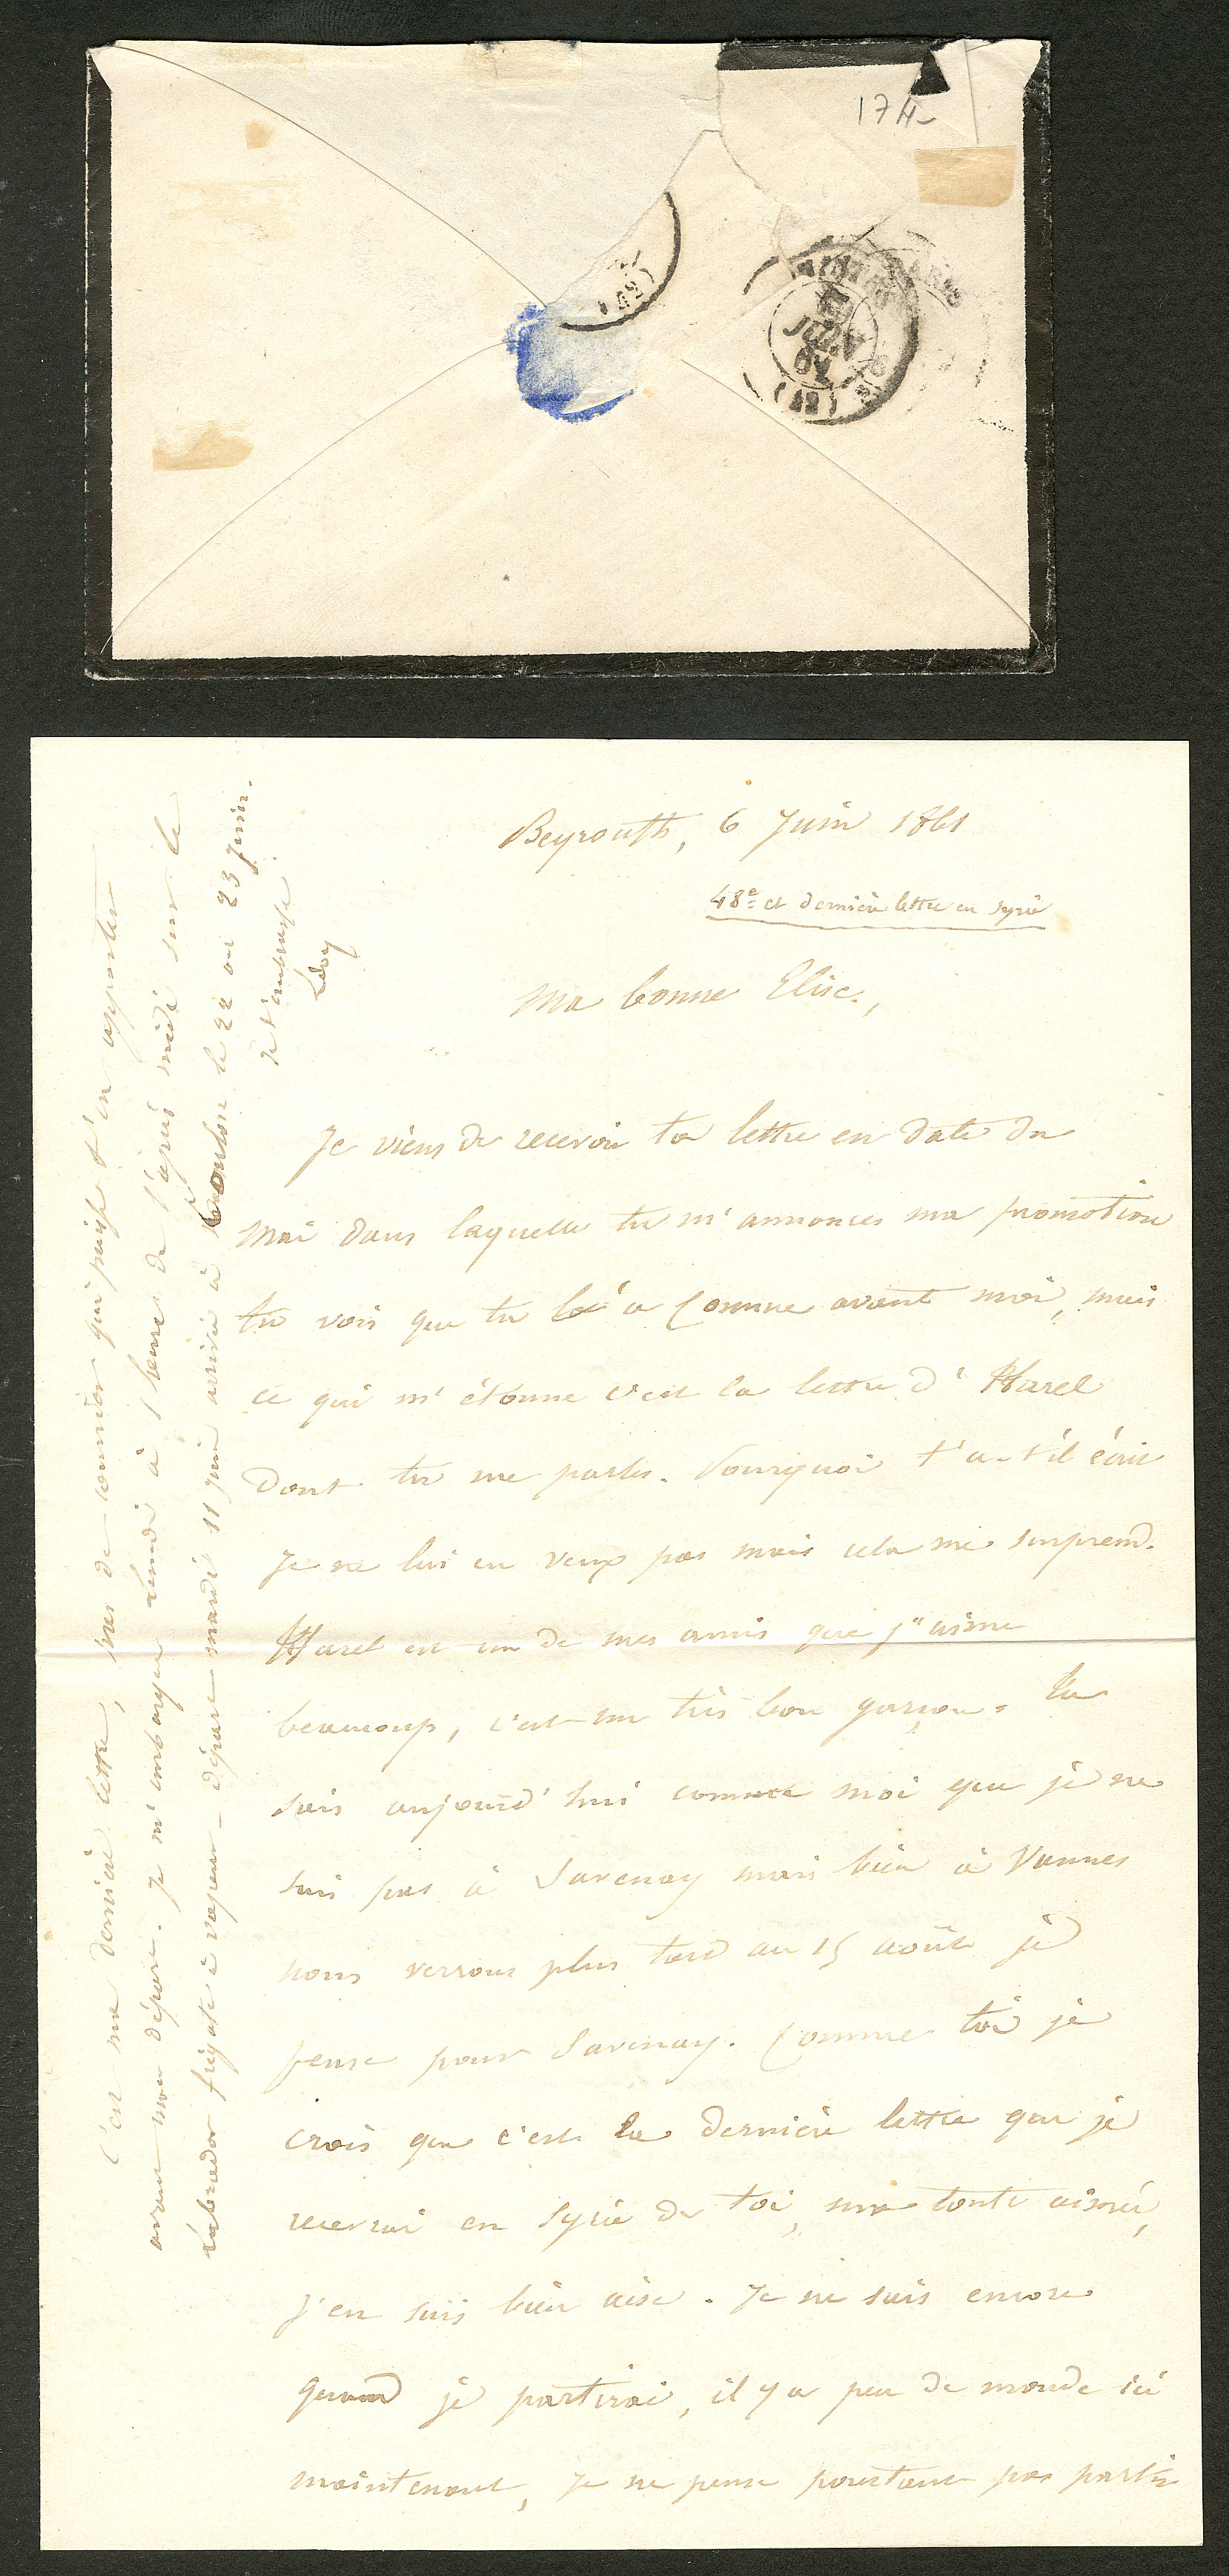 17 H-
(42)
JUIN
61
(42)
Beyrouth, 6 Juin 1861
48e et dernière lettre en Syrie
Ma bonne Elise,
Je viens de recevoir ta lettre en date du
mai dans laquelle tu m'annonces ma promotion
tu vois que tu l'a connue avant moi, mais
ce qui m'étonne c'est la lettre d'Harel
dont tu me parles. Pourquoi t'a-t'il écrit
Je ne lui en veux pas mais cela me surprend.
Harel est un de mes amis que j'aime
beaucoup, c'est un très bon garçon. tu
sais aujourd'hui comme moi que je ne
suis pas à Savenay mais bien à Vannes
nous verrons plus tard au 15 août je
pense pour Savenay. Comme toi je
crois que c'est la dernière lettre que je
recevrai en Syrie de toi, ma toute aimée,
j'en suis bien aise. Je ne sais encore
quand je partirai, il y a peu de monde ici
maintenant, je ne pense pourtant pas partir
c'est ma dernière lettre, pas de courrier qui puisse t'en apporter
avant mon départ. Je m'embarque lundi à 1 heure de l'après midi sur le
Labrador frégate à vapeur - départ mardi 11 juin arrivée à Toulon le 22 ou 23 juin.
Je t'embrasse
Lévy